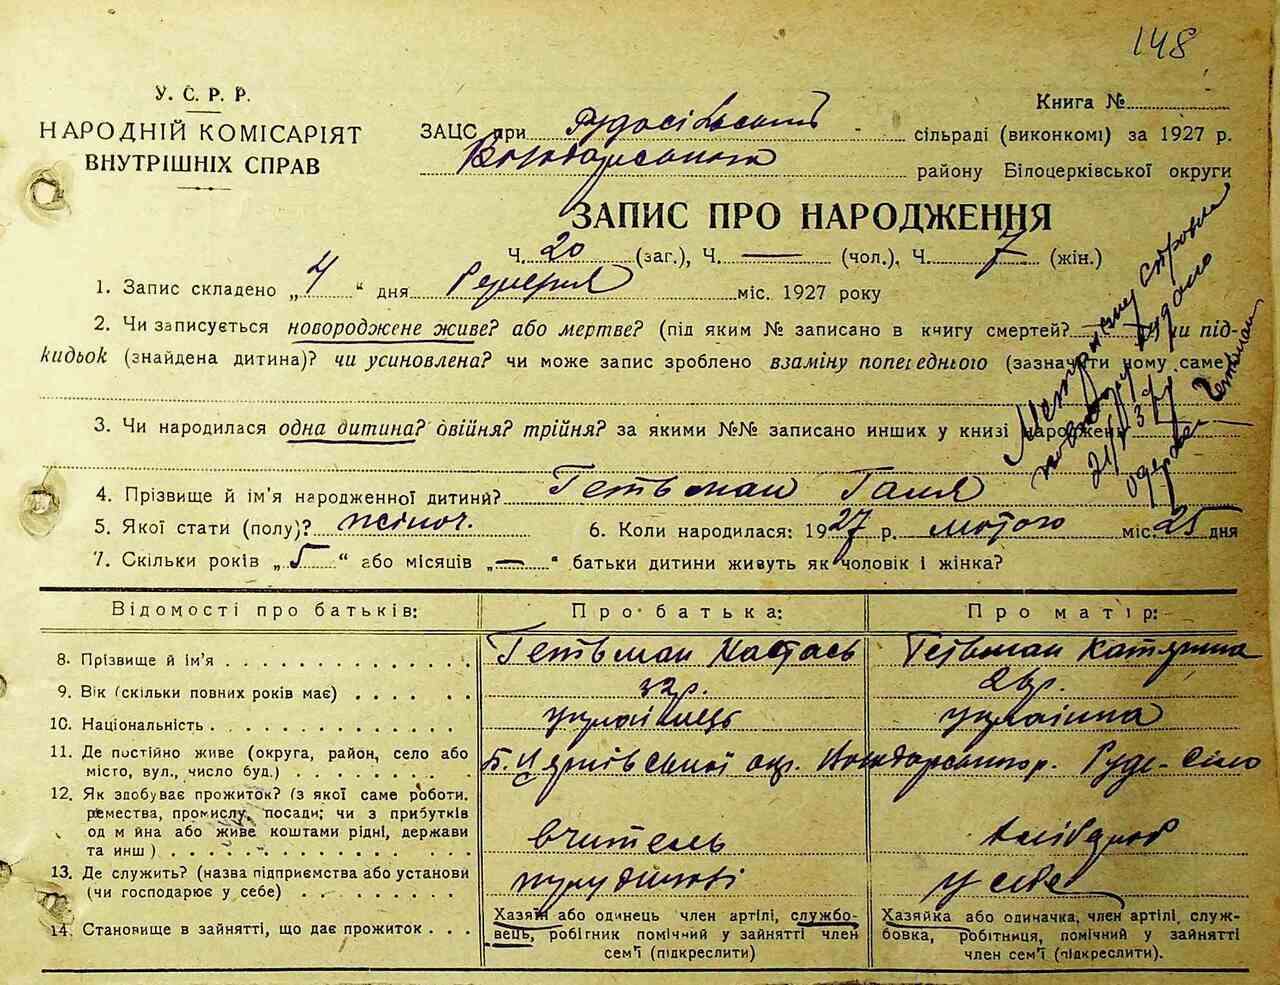 148
У. С. Р. Р.
НАРОДНІЙ КОМІСАРІЯТ
ВНУТРІШНІХ СПРАВ
Книга №
ЗАЦС при Рудосільський сільраді (виконкомі) за 1927 р.
Володарського району Білоцерківської округи
ЗАПИС ПРО НАРОДЖЕННЯ
Ч. 20 (заг.), Ч. — (чол.), Ч. 7 (жін.)
1. Запис складено „ 4 “ дня міс. 1927 року
2. Чи записується новороджене живе? або мертве? (під яким № записано в книгу смертей? чи під-
кидьок (знайдена дитина)? чи усиновлена? чи може запис зроблено взаміну попереднього (зазначити чому саме)
3. Чи народилася одна дитина? двійня? трійня? за якими №№ записано инших у книзі народжень
4. Прізвище й ім'я народженної дитини? Гетьман Галя
5. Якої стати (полу)? жіноч. 6. Коли народилася: 1927 р. лютого міс. 25 дня
7. Скільки років „ 5 “ або місяців „ — “ батьки дитини живуть як чоловік і жінка?
Відомості про батьків: Про батька: Про матір:
8. Прізвище й ім'я Гетьман Гетьман Катерина
9. Вік (скільки повних років має) 32р.
10. Національність українець українка
11. Де постійно живе (округа, район, село або Б. Церківської окр. Володарського р. Руде-Село
місто, вул., число буд.)
12. Як здобуває прожиток? (з якої саме роботи,
ремества, промислу, посади; чи з прибутків
од майна або живе коштами рідні, держави вчитель
та инш)
13. Де служить? (назва підприємства або установи у себе
(чи господарює у себе)
14. Становище в зайнятті, що дає прожиток
Хазяїн або одинець член артілі, службо-
вець, робітник помічний у зайнятті член
сем'ї (підкреслити)
Хазяйка або одиначка, член артілі, служ-
бовка, робітниця, помічний у зайнятті
член сем'ї (підкреслити).
Метричну
одержав Гетьман